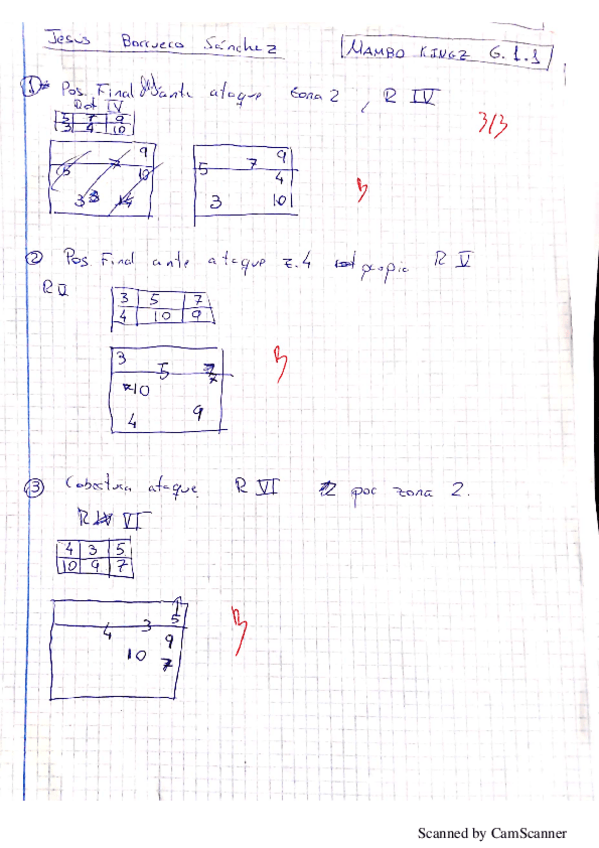 Jesus Borrueco Sánchez
MAMBO KINGZ G.1.1
① Pos. Final ante ataque zona 2, R IV
Rot IV
5 7 9
3 4 10
3/3
9
5 7 10
3
9
5 7
4
3 10
B
② Pos. Final ante ataque z.4 propio R V
R V
3 5 7
4 10 9
3
5 7
10
4 9
B
③ Cobertura ataque R VI por zona 2.
R VI
4 3 5
10 9 7
5
4 3
9
10 7
B
Scanned by CamScanner